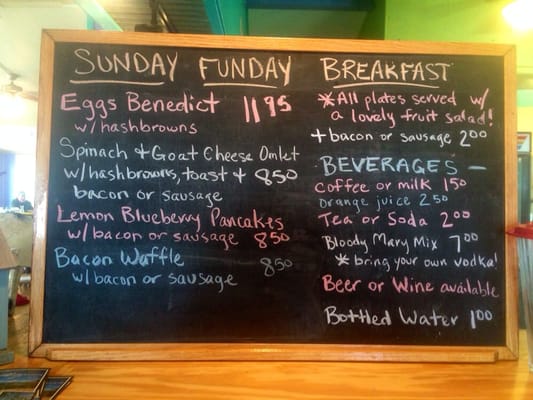 SUNDAY FUNDAY BREAKFAST
Eggs Benedict 11 95
w/hashbrowns
Spinach & Goat Cheese Omlet
w/hashbrowns, toast & 8 50
bacon or sausage
Lemon Blueberry Pancakes
w/ bacon or sausage 8 50
Bacon Waffle 8 50
w/ bacon or sausage
*All plates served w/
a lovely fruit salad!
+ bacon or sausage 2 00
BEVERAGES –
coffee or milk 1 50
orange juice 2 50
Tea or Soda 2 00
Bloody Mary Mix 7 00
*bring your own vodka!
Beer or Wine available
Bottled Water 1 00